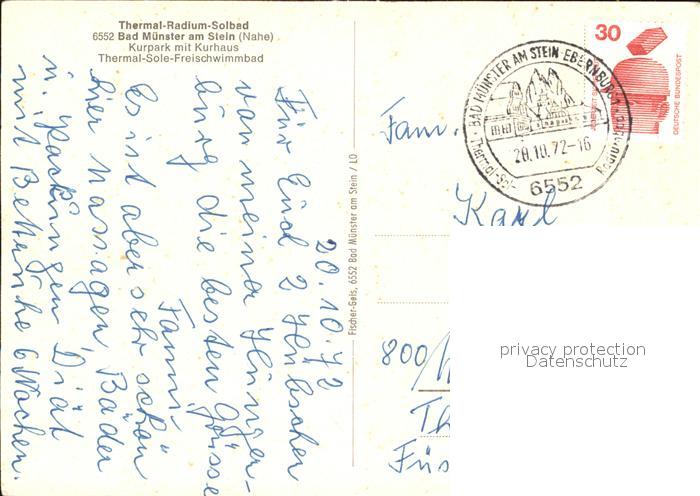 Thermal-Radium-Solbad
6552 Bad Münster am Stein (Nahe)
Kurpark mit Kurhaus
Thermal-Sole-Freischwimmbad
20.10.72
Für Euch 2
von meiner Hunger-
burg die besten Grüsse
Fanni.
Es ist aber sehr schön
hier Massagen, Bäder
u. Packungen, Diät
mit Bettruhe 6 Wochen.
Fischer-Gels, 6552 Bad Münster am Stein / LO
BAD MÜNSTER AM STEIN-EBERNBURG 1
Thermal-Sol-
Radium
20.10.72-16
6552
30
DEUTSCHE BUNDESPOST
Fam.
Karl
800/
Th
Füs
privacy protection
Datenschutz